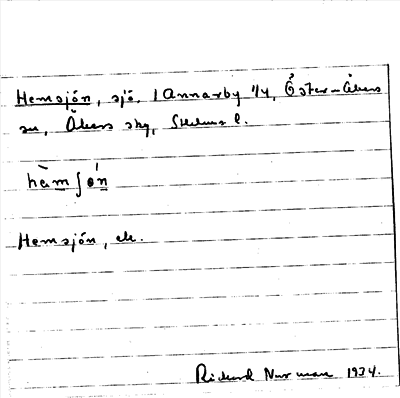 Hemsjön, sjö, i Annarby 1/4, Öster-Åkers
sn, Åkers sky, Sthlms l.
hàmʃón
Hemsjón, ek.
Rickard Norman 1934.